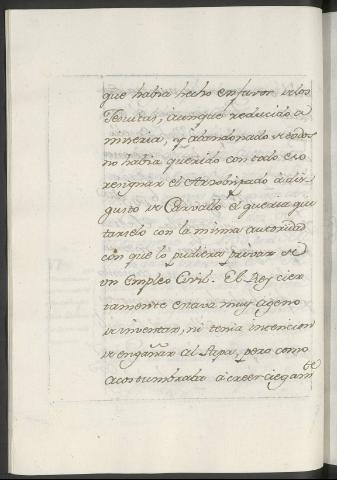 que habia hecho en favor de los
Jesuitas, i aunque reducido a
miseria, y abandonado de todos
no habia querido con todo eso
resignar el Arzobispado à dis
gusto de Carvallo q̃ queria qui
tarselo con la misma autoridad
con que lo pudiera privar de
un Empleo Civil. El Rey cier
tamente estava muy ageno
de inventar, ni tenia intencion
de engañar al Papa, pero como
acostumbraba à creer ciegam.te